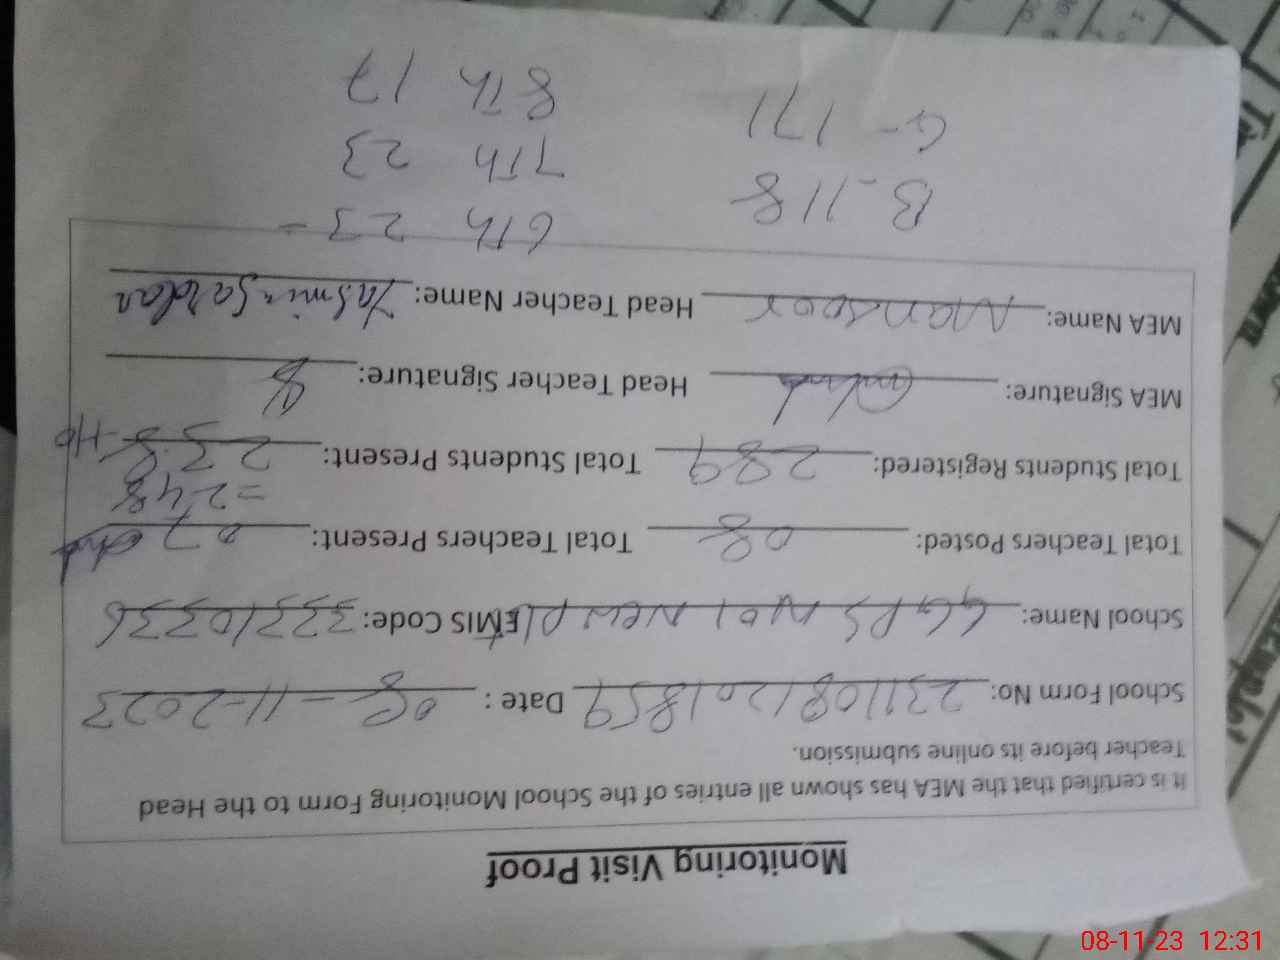 Monitoring Visit Proof
It is certified that the MEA has shown all entries of the School Monitoring Form to the Head
Teacher before its online submission.
School Form No: 2311081201859 Date : 08-11-2023
8
School Name: GGPS No1 New pl EMIS Code: 33310336
Total Teachers Posted: 08 Total Teachers Present: 07
=248
Total Students Registered: 289 Total Students Present: 238
MEA Signature: Head Teacher Signature:
MEA Name: Mansoor Head Teacher Name: Yasmin Sardar
6Th 23 -
B-118 7Th 23
G-171 8Th 17
08-11-23 12:31